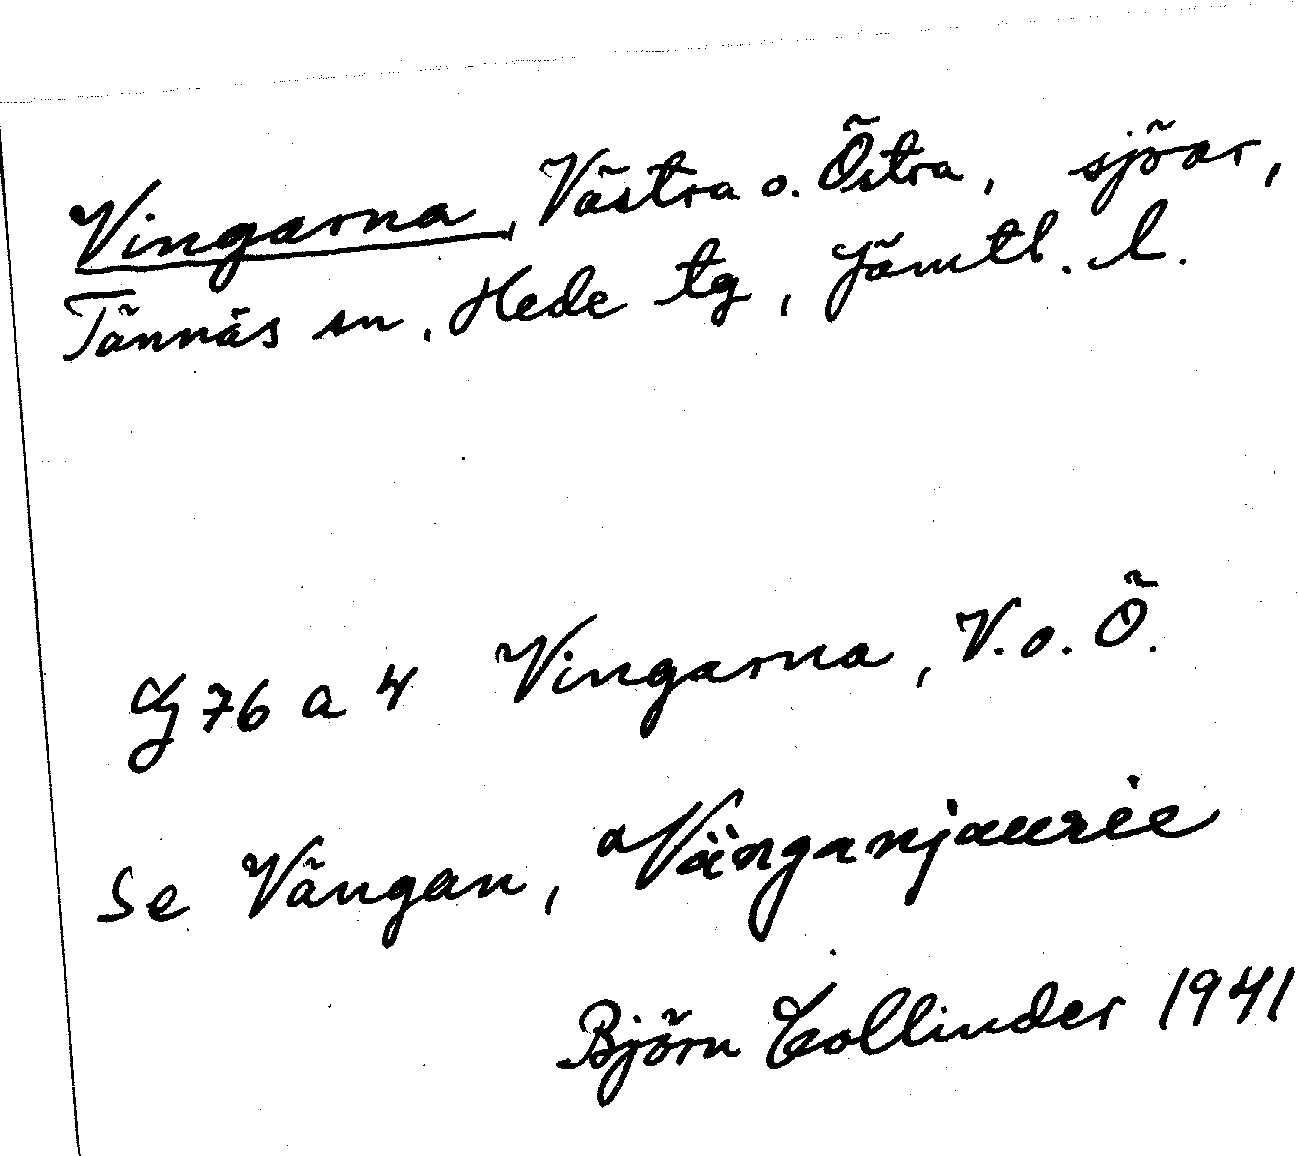 Vingarna, Västra o. Östra, sjöar,
Tännäs sn, Hede tg, Jämtl. l.
G 76 a 4 Vingarna, V. o. Ö.
Se Vängan, a Vänganjaurie
Björn Collinder 1941